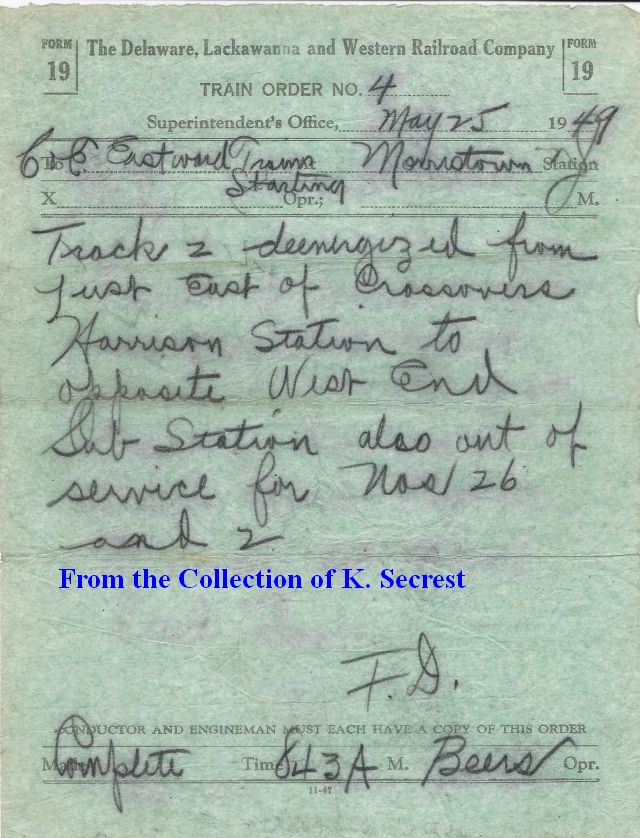 FORM 19 The Delaware, Lackawanna and Western Railroad Company FORM 19
TRAIN ORDER NO. 4
Superintendent's Office, May 25 1949
To C&E Eastward Trains Morristown NJ Station
Starting
X Opr.; M.
Track 2 deenergized from
just East of Crossovers
Harrison Station to
opposite West End
Sub Station also out of
service for Nos 26
and 2
From the Collection of K. Secrest
F.D.
CONDUCTOR AND ENGINEMAN MUST EACH HAVE A COPY OF THIS ORDER
Made Complete Time 843 A M. Beers Opr.
11-47